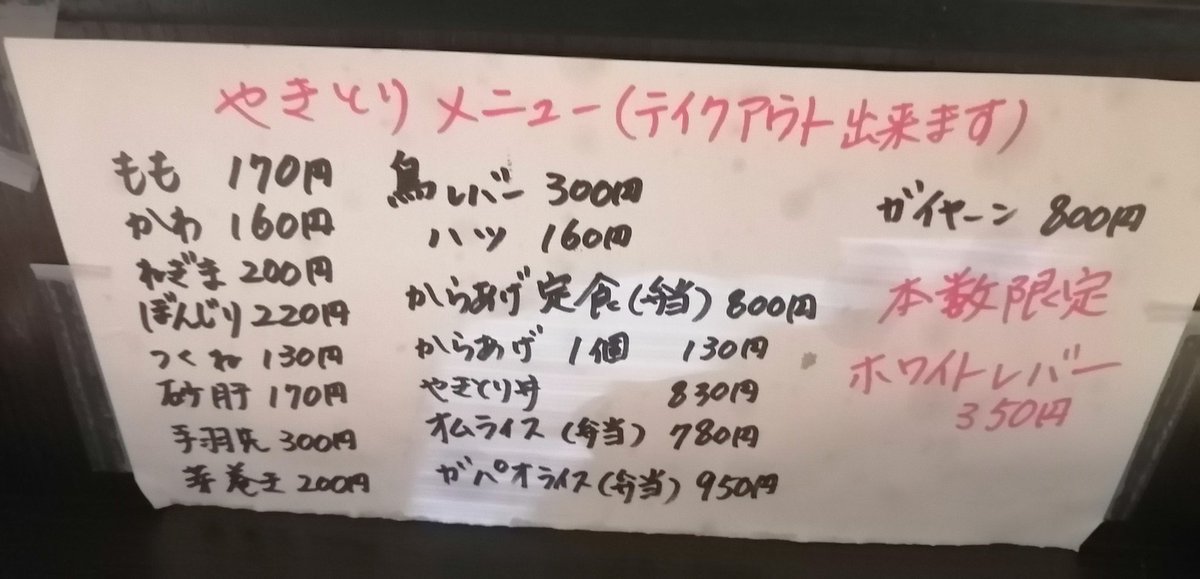 やきとりメニュー(テイクアウト出来ます)
もも 170円
かわ 160円
ねぎま 200円
ぼんじり 220円
つくね 130円
砂肝 170円
手羽先 300円
巻き 200円
鳥レバー 300円
ハツ 160円
からあげ定食(弁当) 800円
からあげ 1個 130円
やきとり丼 830円
オムライス(弁当) 780円
ガパオライス(弁当) 950円
ガイヤーン 800円
本数限定
ホワイトレバー
350円